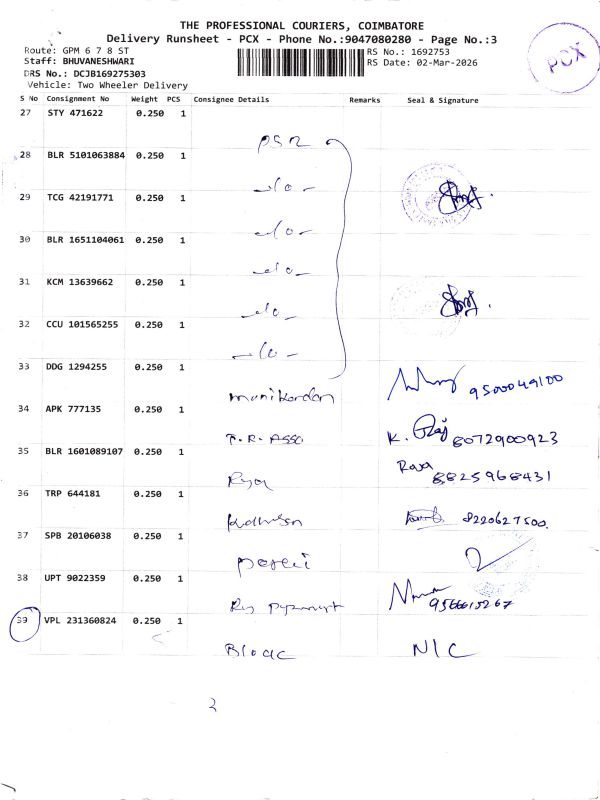 THE PROFESSIONAL COURIERS, COIMBATORE
Delivery Runsheet - PCX - Phone No.:9047080280 - Page No.:3
Route: GPM 6 7 8 ST
RS No.: 1692753
Staff: BHUVANESHWARI
RS Date: 02-Mar-2026
DRS No.: DCJB169275303
Vehicle: Two Wheeler Delivery
PCX
S No Consignment No Weight PCS Consignee Details Remarks Seal & Signature
27 STY 471622 0.250 1
PSR
28 BLR 5101063884 0.250 1
29 TCG 42191771 0.250 1
30 BLR 1651104061 0.250 1
31 KCM 13639662 0.250 1
32 CCU 101565255 0.250 1
33 DDG 1294255 0.250 1
manikandan 9500049100
34 APK 777135 0.250 1
T.R. ASSO K. Raj 8072900923
35 BLR 1601089107 0.250 1
Raja 8825968431
36 TRP 644181 0.250 1
8220627500
37 SPB 20106038 0.250 1
38 UPT 9022359 0.250 1
39 VPL 231360824 0.250 1
NIC
2